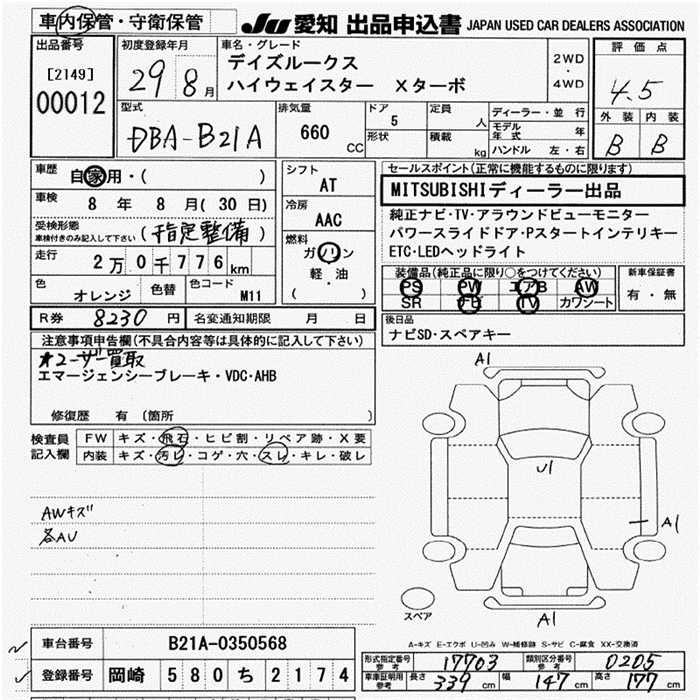 車内保管・守衛保管
JU 愛知 出品申込書 JAPAN USED CAR DEALERS ASSOCIATION
出品番号
[2149]
00012
初度登録年月
29 8月
車名・グレード
デイズルークス
ハイウェイスター Xターボ
2WD
・
4WD
評価点
4.5
外装 内装
B B
型式
DBA-B21A
排気量
660 CC
ドア
5
形状
定員
人
積載
kg
ディーラー・並行
モデル年式 年
ハンドル 左・右
車歴
自家用・( )
車検
8年 8月(30日)
受検形態
車検付きのみ記入して下さい
(指定整備)
走行
2万0千776km
色
オレンジ
色替
色コード
M11
シフト
AT
冷房
AAC
燃料
ガソリン
軽・油
( )
セールスポイント(正常に機能するものに限ります)
MITSUBISHIディーラー出品
純正ナビ・TV・アラウンドビューモニター
パワースライドドア・Pスタートインテリキー
ETC・LEDヘッドライト
装備品(純正品に限り○をつけてください)
PS PW エアB AW
SR TV カワシート
新車保証書
有・無
R券 8230円
名変通知期限 月 日
後日品
ナビSD・スペアキー
注意事項申告欄(不具合内容等は具体的に記入して下さい)
★ユーザー買取
エマージェンシーブレーキ・VDC・AHB
修復歴 有 (箇所 )
検査員
記入欄
FW キズ・飛石・ヒビ割・リペア跡・X要
内装 キズ・汚レ・コゲ・穴・スレ・キレ・破レ
AWキズ
各AU
A1
U1
A1
A1
スペア
A-キズ E-エクボ U-凹み W-補修跡 S-サビ C-腐食 XX-交換済
車台番号 B21A-0350568
登録番号 岡崎 580 ち 2174
形式指定番号
参考
17703
類別区分番号
参考
0205
車庫証明用
参考
長さ 339cm
幅 147cm
高さ 177cm